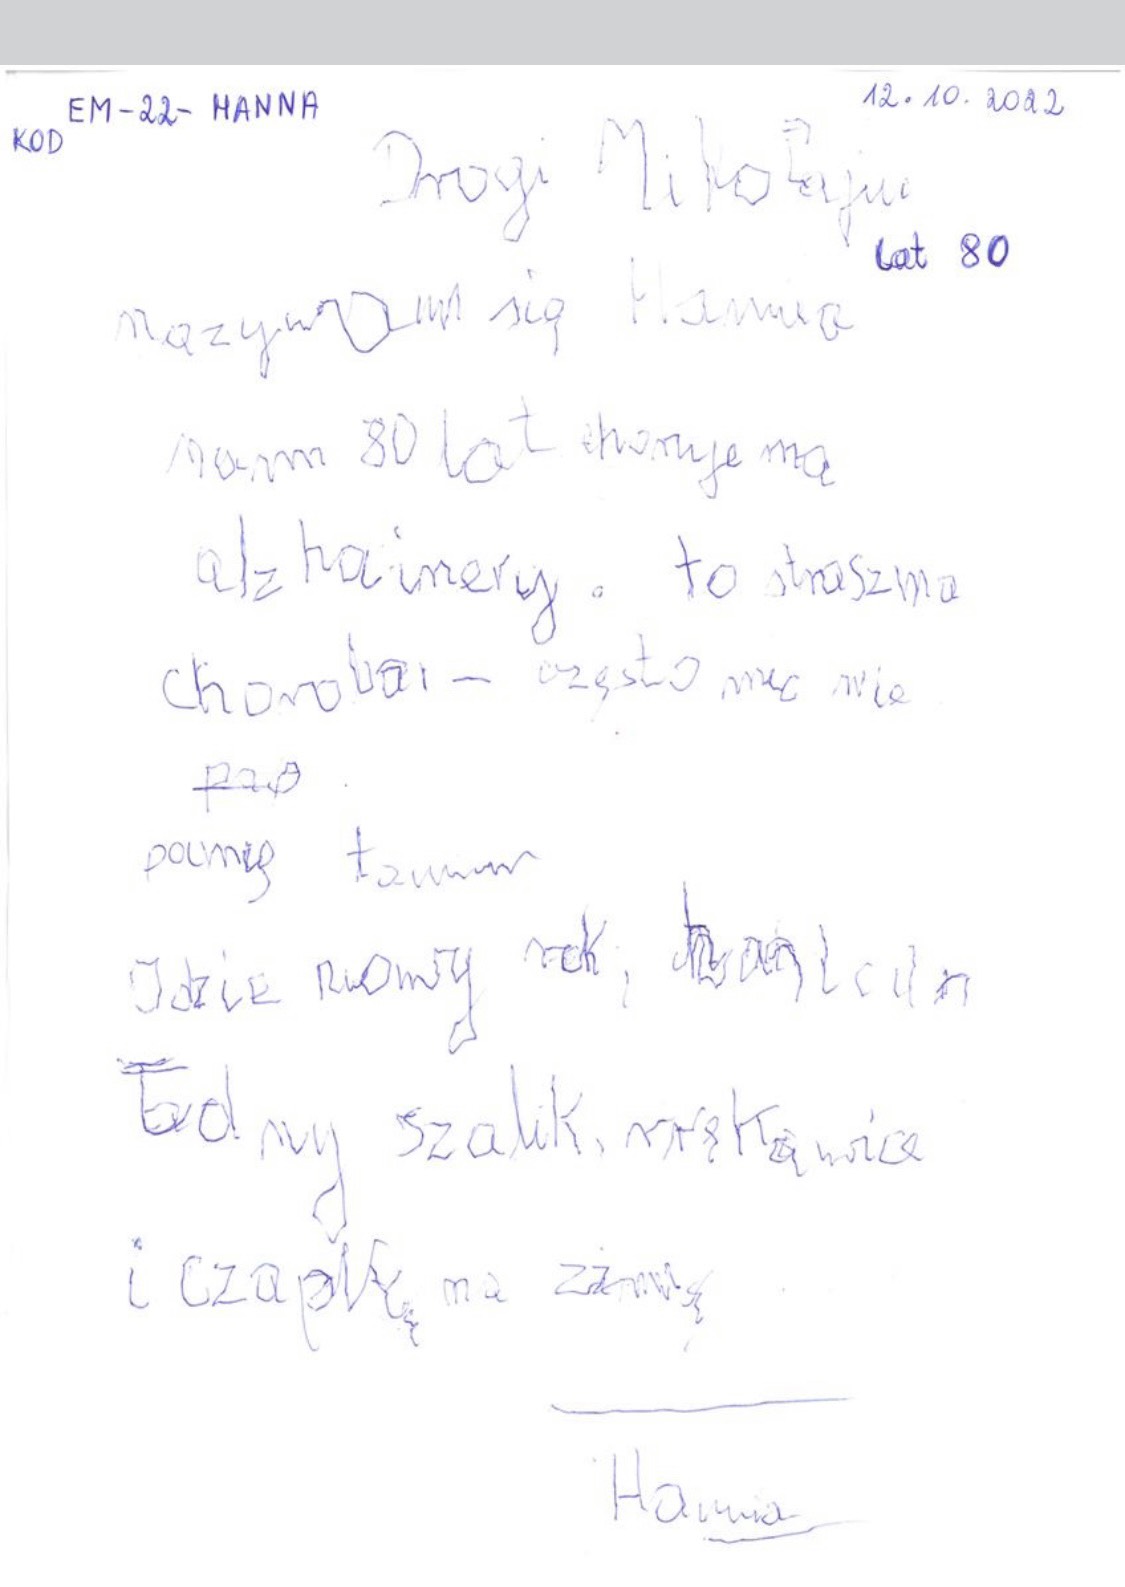 EM-22- HANNA
12.10.2022
KOD
Drogi Mikołaju
lat 80
nazywam się Hania
mam 80 lat choruje na
alzhaimery. to straszna
choroba - często nic nie
pamię
Idzie nowy rok,
Ładny szalik, rękawice
i czapkę na zimę
Hania